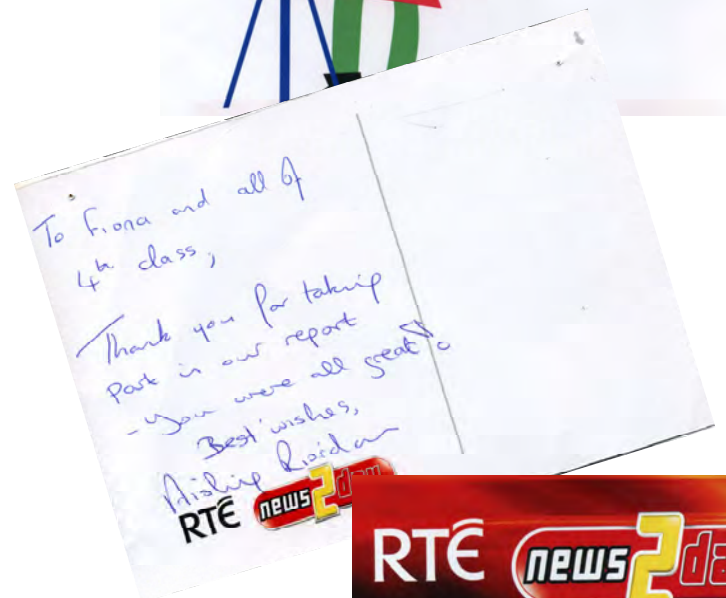 To Fiona and all of
4th class,
Thank you for taking
Part in our report
- You were all great!
Best wishes,
Aisling Riordan
RTÉ news2day
RTÉ news2da